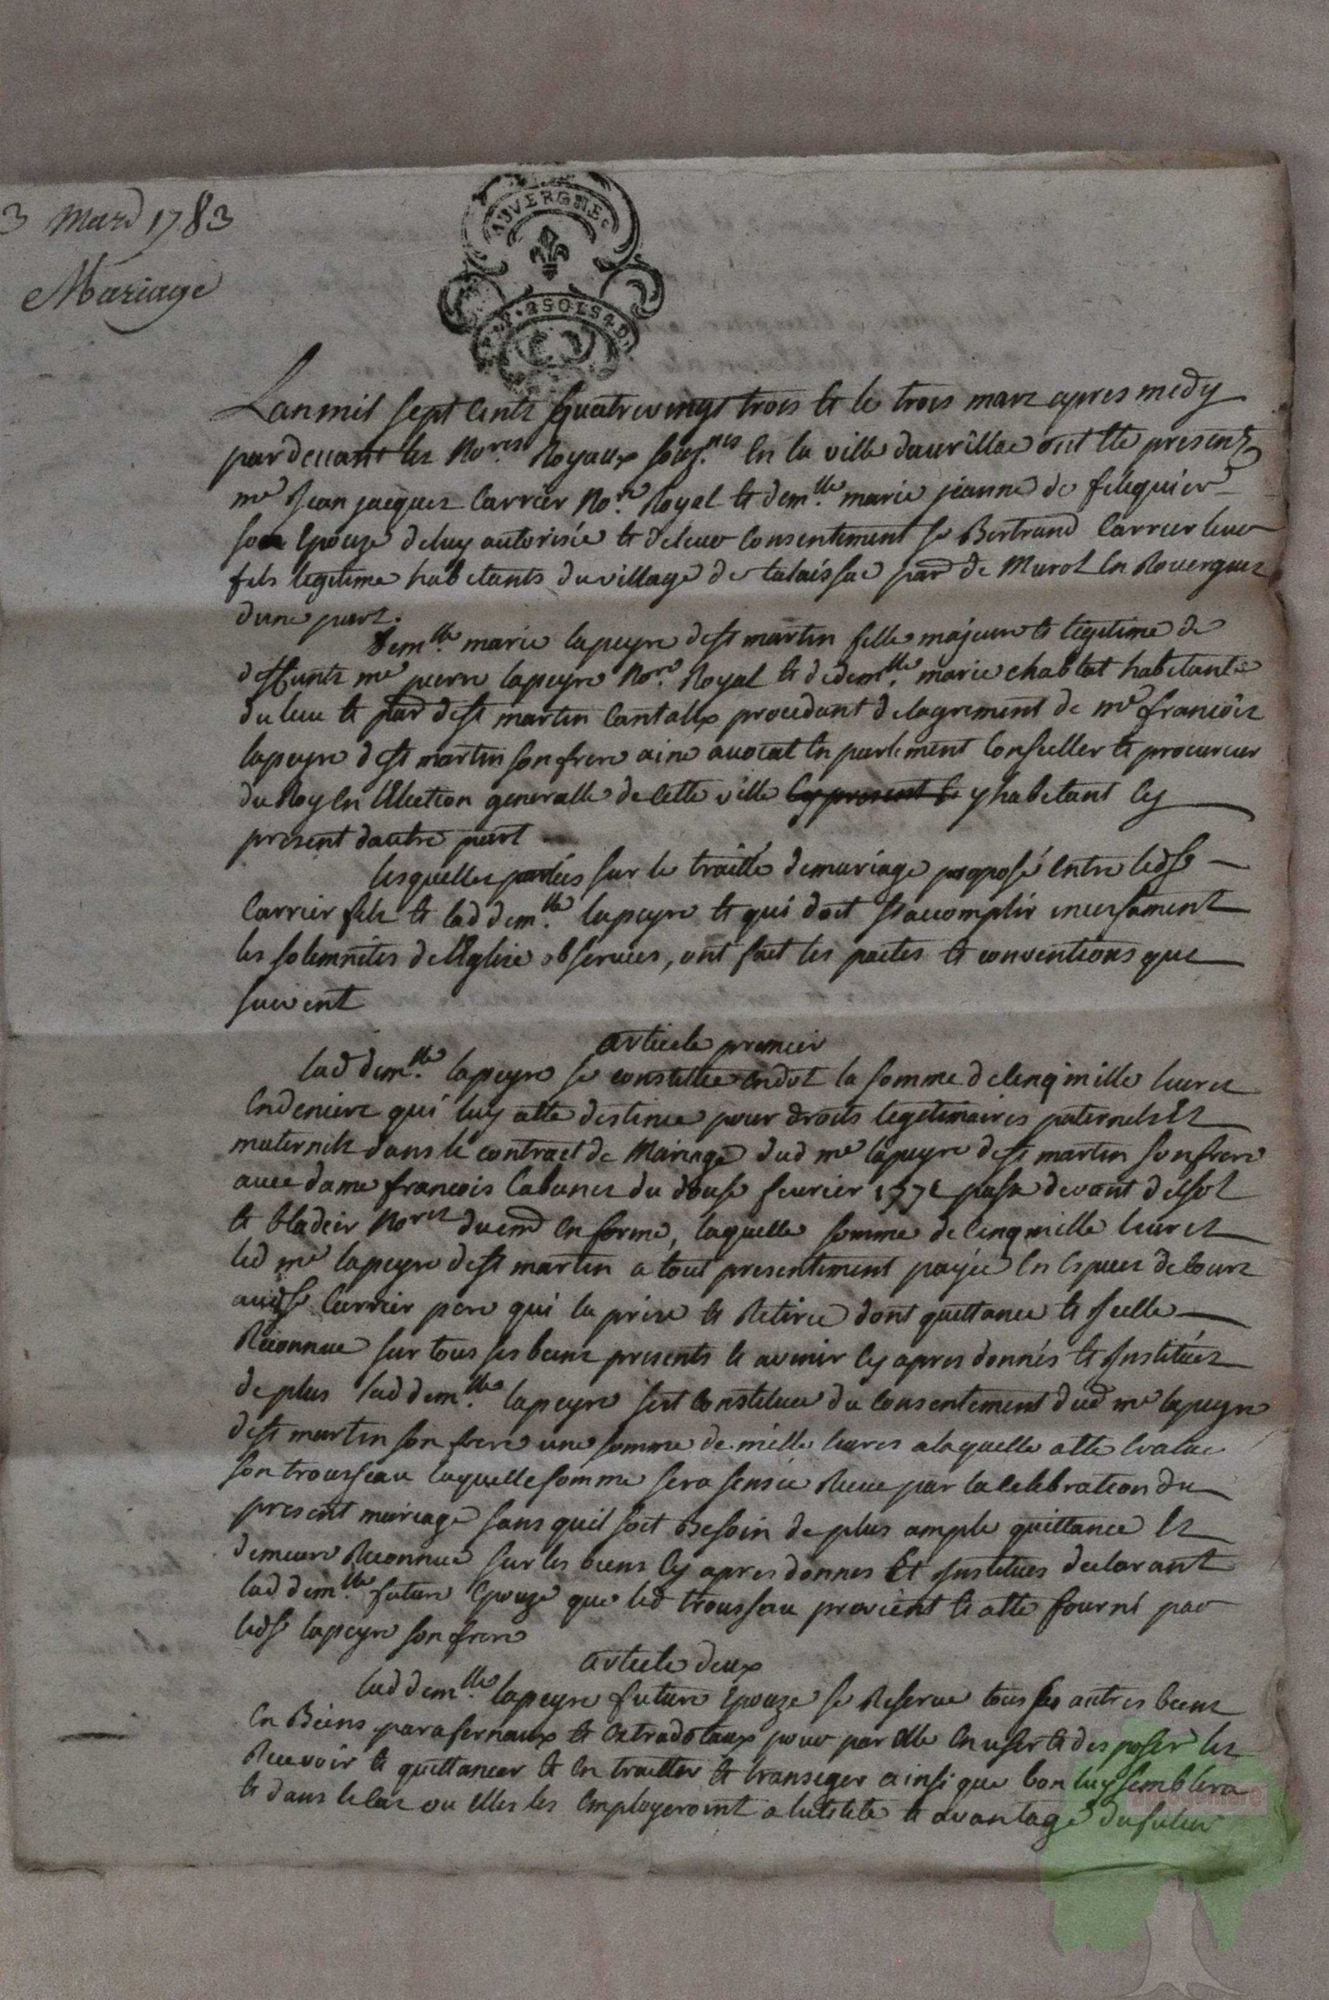 3 Mars 1783
Mariage
AUVERGNE
2 SOLS 4 D
Lan mil sept cents quatre vingt trois et le trois mars apres medy
pardevant les No.res Royaux sous.nes en la ville daurillac ont ete presents
me Jean jacques Carrier No.re Royal et dem.lle marie jeanne de felequier
son Epouze deluy autorisée et deleur consentement sr Bertrand Carrier leur
fils legitime habitants du village de talaissac par de Murol en Rouergue
dune part.
Dem.lle marie lapeyre dest martin fille majeure et legitime de
deffunts me pierre lapeyre No.re Royal et de dem.lle marie chablat habitante
du lieu et par dest martin Cantalex procedant de lagrement de me françois
lapeyre dest martin son frere ainé avocat en parlement Conseiller et procureur
du Roy en lElection generalle de cette ville cy present et y habitant cy
present dautre part
lesquelles parties sur le traitté demariage proposé entre ledsr
Carrier fils et lad dem.lle lapeyre et qui doit saccomplir incessament
les solemnites de lEglise observées, ont fait les pactes et conventions que
suivent
article premier
lad dem.lle lapeyre se constitue en dot la somme de cinq mille livres
en deniers qui luy a ete destinée pour droits legitimaires paternels et
maternels dans le contract de Mariage dud me lapeyre dest martin son frere
avec dame françois Cabanes du douse fevrier 177 passé devant delsol
et bladeir No.res duemt en forme, laquelle somme de cinq mille livres
led me lapeyre dest martin a tout presentement payée en espèces de cours
audsr Carrier pere qui la prise et Retirée dont quittance et icelle
Reconnue sur tous ses biens presents et avenir cy apres donnés et instituées
de plus lad dem.lle lapeyre sest constituée du consentement dud me lapeyre
dest martin son frere une somme de mille livres a laquelle a ete evalué
son trousseau laquelle somme sera sensée Reçue par la celebration du
present mariage sans quil soit besoin de plus ample quittance et
demeure Reconnue sur les biens cy apres donnés et institués declarant
lad dem.lle future Epouze que led trousseau provient et a ete fourni par
ledsr lapeyre son frere
article deux
lad dem.lle lapeyre future Epouze se Reserve tous ses autres biens
en Biens parafernaux et extradotaux pour par elle en user et disposer les
Recevoir et quittancer et en traitter et transiger ainsi que bon luy semblera
et dans le cas ou elles les employeroint a lutilité et avantage du futur